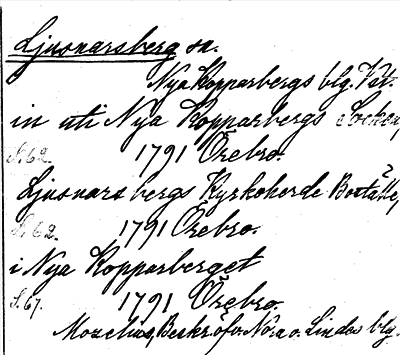 Ljusnarsberg sn.
Nya Kopparbergs blg. Vst.
in uti Nya Kopparbergs Socken,
S. 62. 1791 Örebro.
Ljusnars bergs Kyrkoherde Boställe,
S. 62. 1791 Örebro.
i Nya Kopparberget
S. 67. 1791 Örebro.
Beskr. öfv. Nora o. Lindes blg.